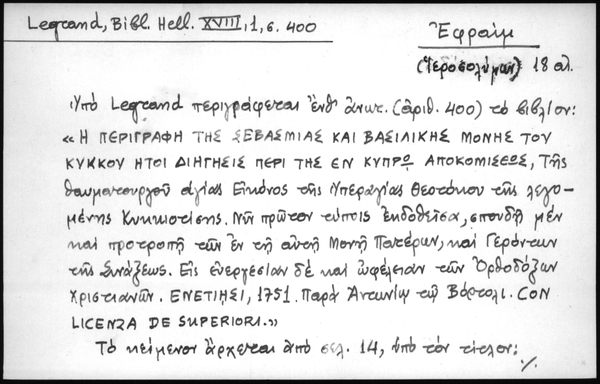 Legrand, Bibl. Hell. XVIII, 1, σ. 400
Ἐφραὶμ
(Ἱεροσολύμων) 18 αἰ.
Ὑπὸ Legrand περιγράφεται ἔνθ' ἀνωτ. (ἀριθ. 400) τὸ βιβλίον:
« Η ΠΕΡΙΓΡΑΦΗ ΤΗΣ ΣΕΒΑΣΜΙΑΣ ΚΑΙ ΒΑΣΙΛΙΚΗΣ ΜΟΝΗΣ ΤΟΥ
ΚΥΚΚΟΥ ΗΤΟΙ ΔΙΗΓΗΣΙΣ ΠΕΡΙ ΤΗΣ ΕΝ ΚΥΠΡῼ ΑΠΟΚΟΜΙΣΕΩΣ, Τῆς
θαυματουργοῦ ἁγίας Εἰκόνος τῆς Ὑπεραγίας Θεοτόκου τῆς λεγο-
μένης Κυκκιοτίσης. Νῦ πρῶτον τύποις ἐκδοθεῖσα, σπουδῇ μὲν
καὶ προτροπῇ τῶν ἐν τῇ αὐτῇ Μονῇ Πατέρων, καὶ Γερόντων
τῆς Συνάξεως. Εἰς ἐνεργεσίαν δὲ καὶ ὠφέλειαν τῶν Ὀρθοδόξων
Χριστιανῶν. ΕΝΕΤΙΗΣΙ, 1751. Παρὰ Ἀντωνίῳ τῷ Βόρτολι. CON
LICENZA DE SUPERIORI.»
Τὸ κείμενον ἄρχεται ἀπὸ σελ. 14, ὑπὸ τὸν τίτλον:
./.